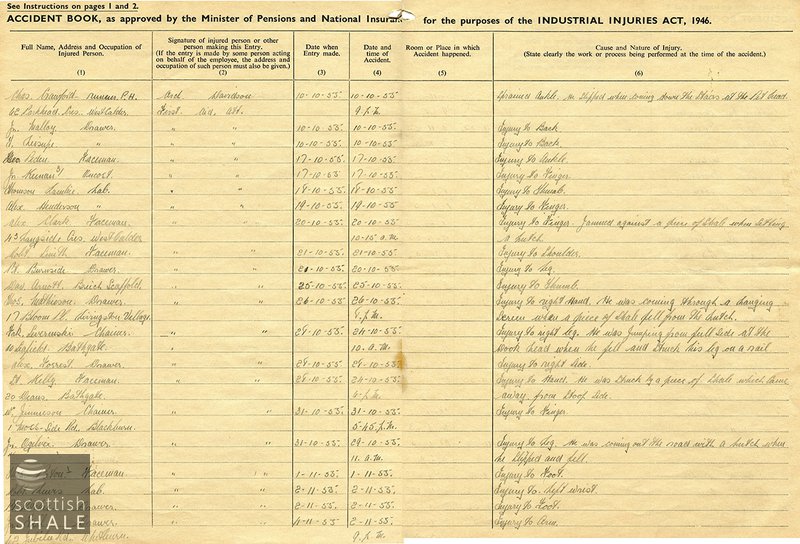 See Instructions on pages 1 and 2.
ACCIDENT BOOK, as approved by the Minister of Pensions and National Insurance for the purposes of the INDUSTRIAL INJURIES ACT, 1946.
Full Name, Address and Occupation of Injured Person. (1)
Signature of injured person or other person making this Entry. (If the entry is made by some person acting on behalf of the employee, the address and occupation of such person must also be given.) (2)
Date when Entry made. (3)
Date and time of Accident. (4)
Room or Place in which Accident happened. (5)
Cause and Nature of Injury. (State clearly the work or process being performed at the time of the accident.) (6)
Chas. Crawford Runner P.H. Davidson 10-10-55. 10-10-55. Sprained Ankle. He slipped when coming down the stairs at the Pit head.
62 Parkhead Cres. West Calder First Aid Att. 9 p.m.
Jn. Malloy Drawer " " 10-10-55. 10-10-55. Injury to Back.
" " " 10-10-55. 10-10-55. Injury to Back.
Faceman. " " 17-10-55. 17-10-55. Injury to Ankle.
Jn. Keenan Oncost. " " 17-10-55. 17-10-55. Injury to Finger.
Thomson Lab. " " 18-10-55. 18-10-55. Injury to Thumb.
Alex Henderson " " " 19-10-55. 19-10-55. Injury to Finger.
Alex Clark Faceman. " " 20-10-55. 20-10-55. Injury to Finger. Jammed against a piece of Shale when settling
43 Langside Cres. West Calder 10-15 a.m. a hutch.
Robt. Smith Faceman. " " 21-10-55. 21-10-55. Injury to Shoulder.
Pt. Burnside Drawer. " " 21-10-55. 20-10-55. Injury to Leg.
Dav. Arnott. Brick Scaffold. " " 25-10-55. 25-10-55. Injury to Thumb.
Mathieson. Drawer. " " 26-10-55. 26-10-55. Injury to right Hand. He was coming through a hanging
17 Bloom Pl. Livingston Village. 8 p.m. Screen when a piece of shale fell from the hutch.
Chainer. " " 29-10-55. 24-10-55. Injury to right leg. He was jumping from full side at the
Bathgate. " 10. a.m. Hook head when he fell and struck his leg on a rail
Alex. Forrest Drawer " " 29-10-55. 29-10-55. Injury to right side.
Kelly Faceman. " " 29-10-55. 24-10-55. Injury to Hand. He was struck by a piece of Shale which came
20 Deans Bathgate. 4 p.m. away from Stoop side.
W. Jamieson Chainer " " 31-10-55. 31-10-55. Injury to Finger.
Side Rd. Blackburn. 5-45 p.m.
Jn. Ogilvie Drawer. " " 31-10-55. 29-10-55. Injury to Leg. He was coming out the road with a hutch when
11. a.m. he slipped and fell.
Faceman. " " 1-11-55. 1-11-55. Injury to Foot.
Lab. " " 2-11-55. 2-11-55. Injury to left wrist.
Drawer. " " 2-11-55. 2-11-55. Injury to Foot.
Drawer. " " 4-11-55. 2-11-55. Injury to Arm.
Jubilee Rd. Whitburn. 9. p.m.
scottish
SHALE